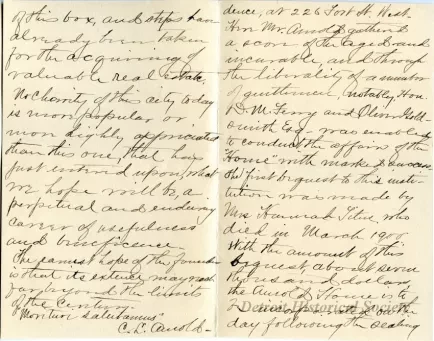 of this box, and steps have
already been taken
for the acquiring of
valuable real estate.
No charity of this city today
is more popular or
more highly appreciated
than this one, that has
just entered upon, what
we hope will be, a
perpetual and enduring
career of usefulness
and beneficence.
The earnest hope of the founder
is that its extent may reach
far beyond the limits
of the Century.
"Moritur Salutamus"
C. L. Arnold-
dence, at 226 Fort St. West.
Here Mr. Arnold gathered
a score of the aged and
incurable, and through
the liberality of a number
of gentlemen, notably, Hon.
D. M. Ferry and
Smith Esq - was enabled
to conduct the affairs of the
"Home" with marked success.
The first bequest to this insti-
tution was made by
Mrs Hannah who
died in March 1900
With the amount of this
bequest, about seven
thousand dollars
the Arnold Home is to
be incorporated on the
day following the sealing
Detroit Historical Society